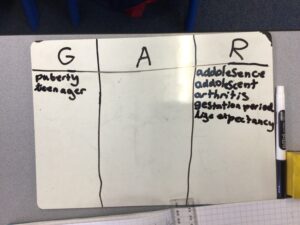 G A R
puberty
teenager
addolesence
addolescent
arthritis
gestation period
life expectancy